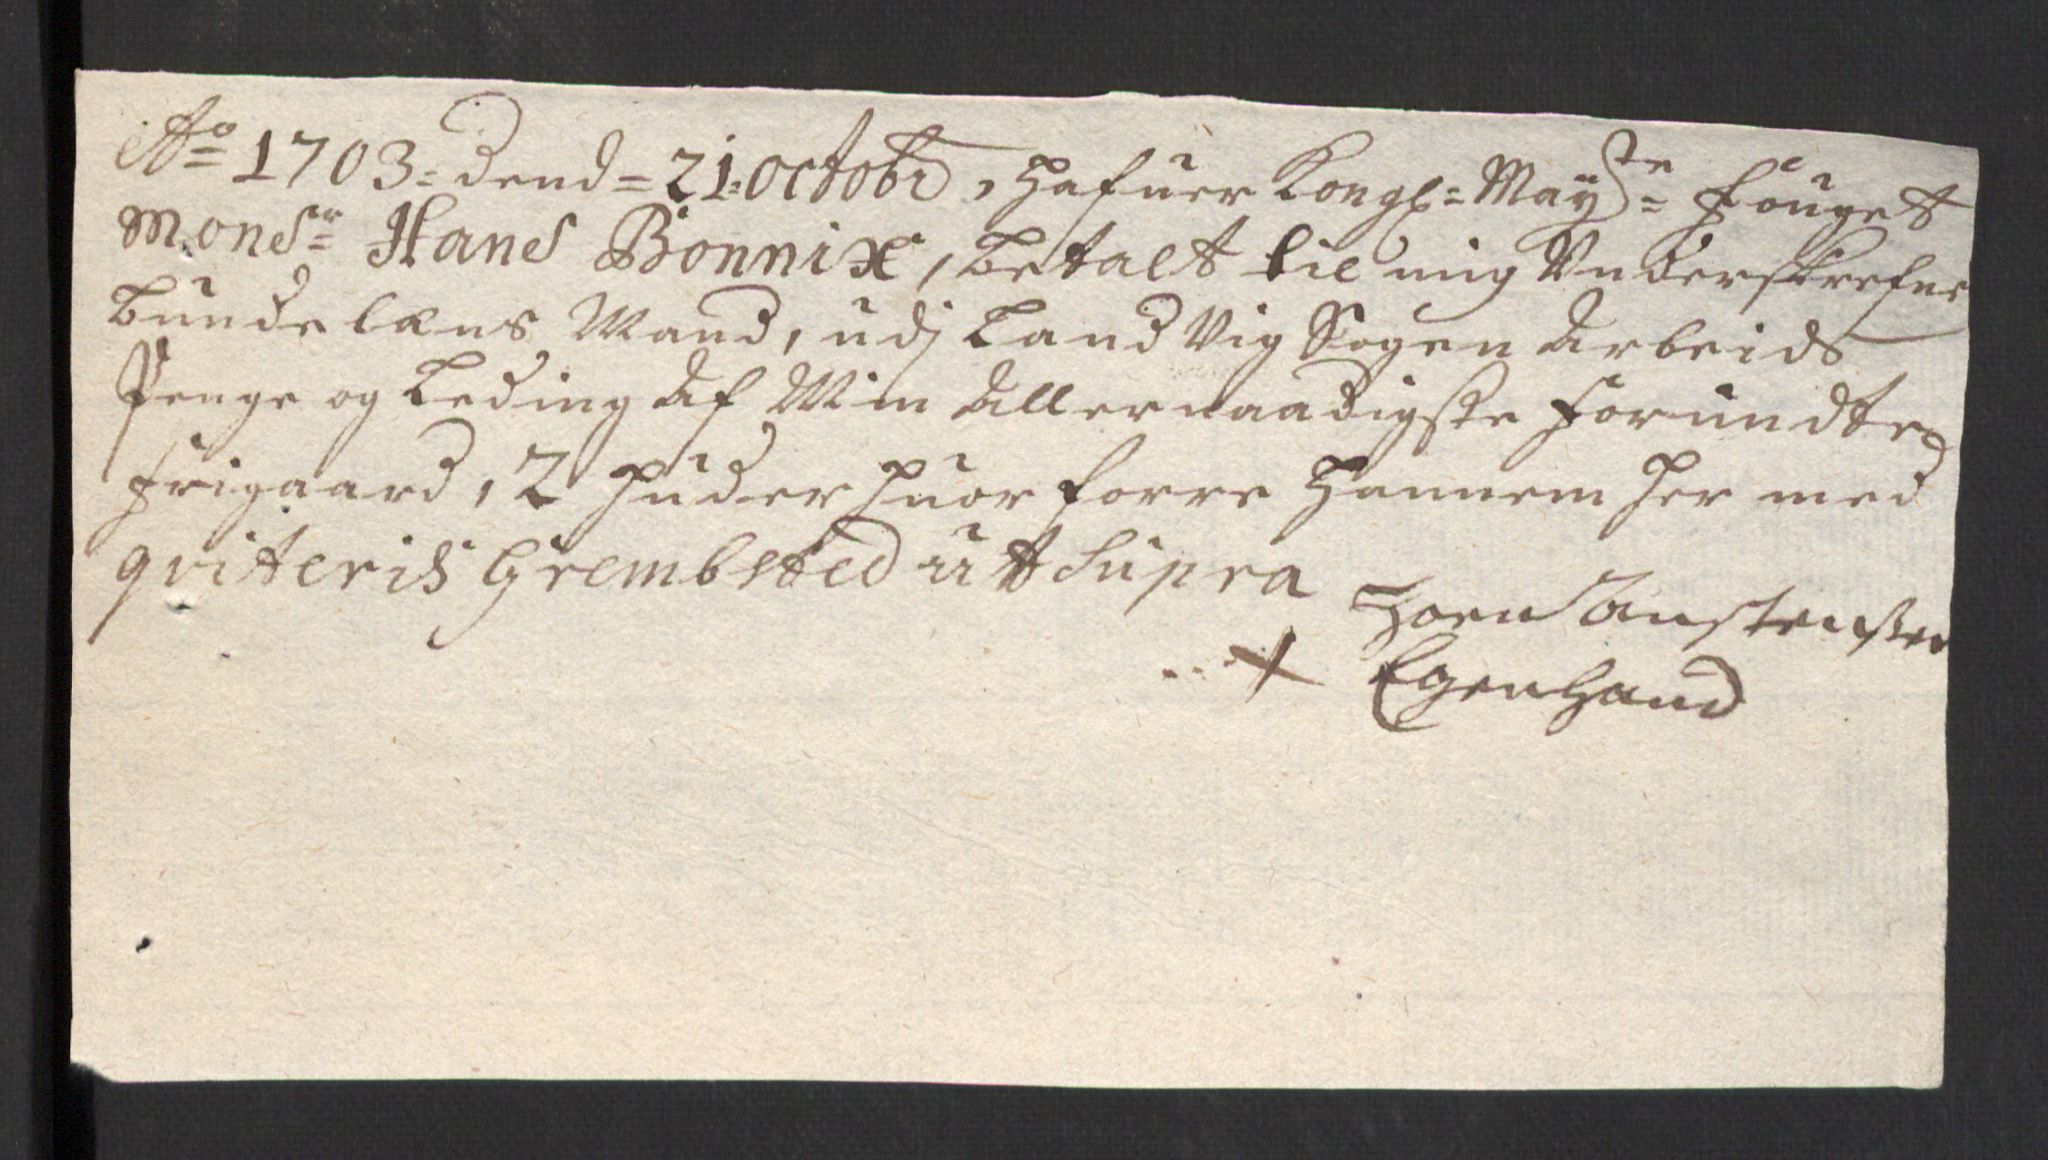 Ao 1703 = dend = 21: octobr, hafuer Kongl= Maÿste= fouget
Monsr= Hans Bonnix, betalt til mig Underskrefne
bunde læns Mand, udj Land Vig Sogen Arbeids
Penge og Leding Af Min Allernaadigste forundte
frigaard, 2 huder huor forre hannem her med
qviteris Grembsted utt Supra
Egenhand